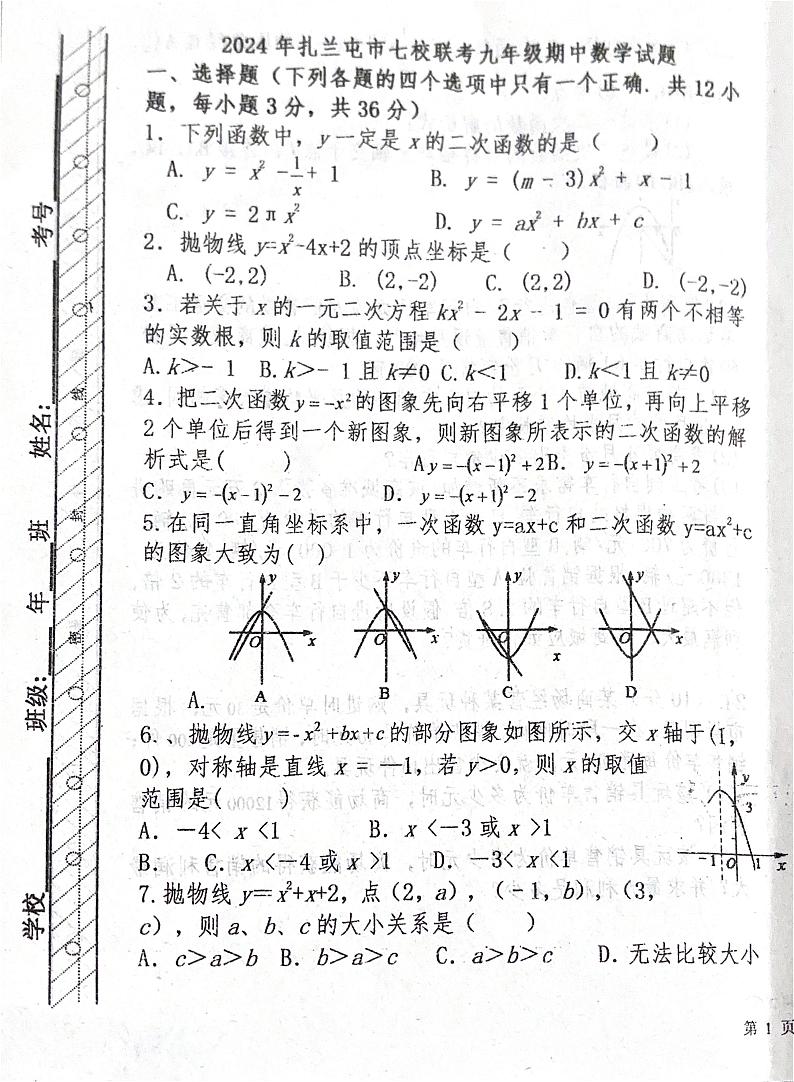 2024年扎兰屯市七校联考九年级期中数学试题
一、选择题（下列各题的四个选项中只有一个正确. 共12小
题，每小题3分，共36分）
1. 下列函数中，y一定是x的二次函数的是（　　）
A. y = x² - 1/x + 1　　B. y = (m - 3)x² + x - 1
C. y = 2πx²　　D. y = ax² + bx + c
2. 抛物线y=x²-4x+2的顶点坐标是（　　）
A. (-2,2)　　B. (2,-2)　　C. (2,2)　　D. (-2,-2)
3. 若关于x的一元二次方程kx² - 2x - 1 = 0有两个不相等
的实数根，则k的取值范围是（　　）
A. k＞- 1　B. k＞- 1且k≠0 C. k＜1　　D. k＜1且k≠0
4. 把二次函数y=-x²的图象先向右平移1个单位，再向上平移
2个单位后得到一个新图象，则新图象所表示的二次函数的解
析式是(　　)　　A y=-(x-1)²+2 B. y=-(x+1)²+2
C. y=-(x-1)²-2　　D. y=-(x+1)²-2
5. 在同一直角坐标系中，一次函数y=ax+c和二次函数y=ax²+c
的图象大致为(　)
y　y　y　y
O　x　O　x　O　x　O　x
A　B　C　D
A.
6. 抛物线y=-x²+bx+c的部分图象如图所示，交x轴于(1,
0)，对称轴是直线x=-1，若y＞0，则x的取值
范围是(
A. －4< x <1　　B. x <－3或x >1
B.　C. x <－4或x >1　D. －3< x <1
y
3
-1 O 1 x
7. 抛物线y＝x²+x+2，点（2，a），（－1，b），（3，
c），则a、b、c的大小关系是（　　）
A. c＞a＞b　B. b＞a＞c　　C. a＞b＞c　　D. 无法比较大小
第 1 页
学校　班级:　年　班　姓名:　考号
密　封　线